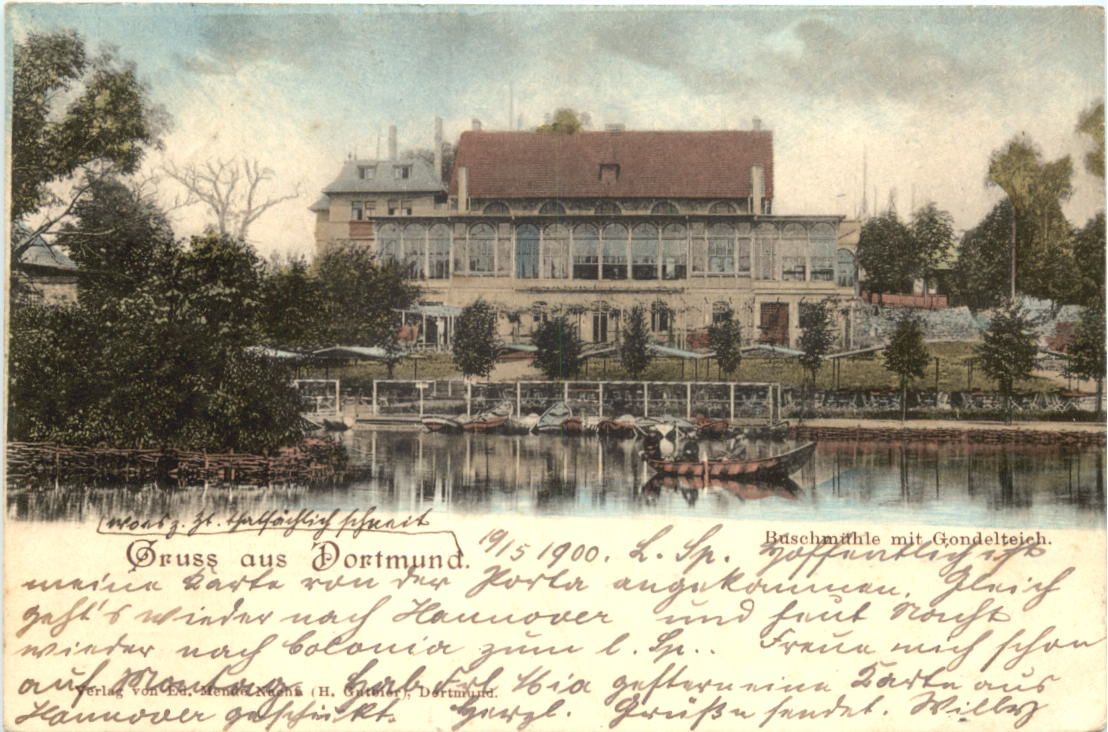 (wo es z. Zt. thatsächlich schneit
Gruss aus Dortmund.
Buschmühle mit Gondelteich.
19/5 1900. L. Sp. Hoffentlich ist
meine Karte von der Porta angekommen. Gleich
geht's wieder nach Hannover und heut Nacht
wieder nach Colonia zum l. Sp.. Freue mich schon
auf Montag. Hab Frl. Mia gestern eine Karte aus
Verlag von Ed. Mende Nachf. (H. Gutbier), Dortmund.
Hannover geschickt. Herzl. Grüße sendet. Willy